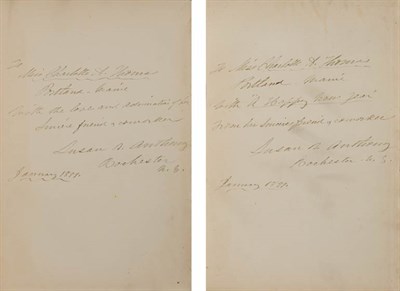 To
Miss Charlotte A. Thomas
Portland - Maine
With the love and admiration of her
sincere friend & coworker
Susan B. Anthony
Rochester
N. Y.
January 1899.
To Miss Charlotte A. Thomas
Portland Maine
With A Happy New Year
from her sincere friend & coworker
Susan B. Anthony
Rochester
N. Y.
January 1899.